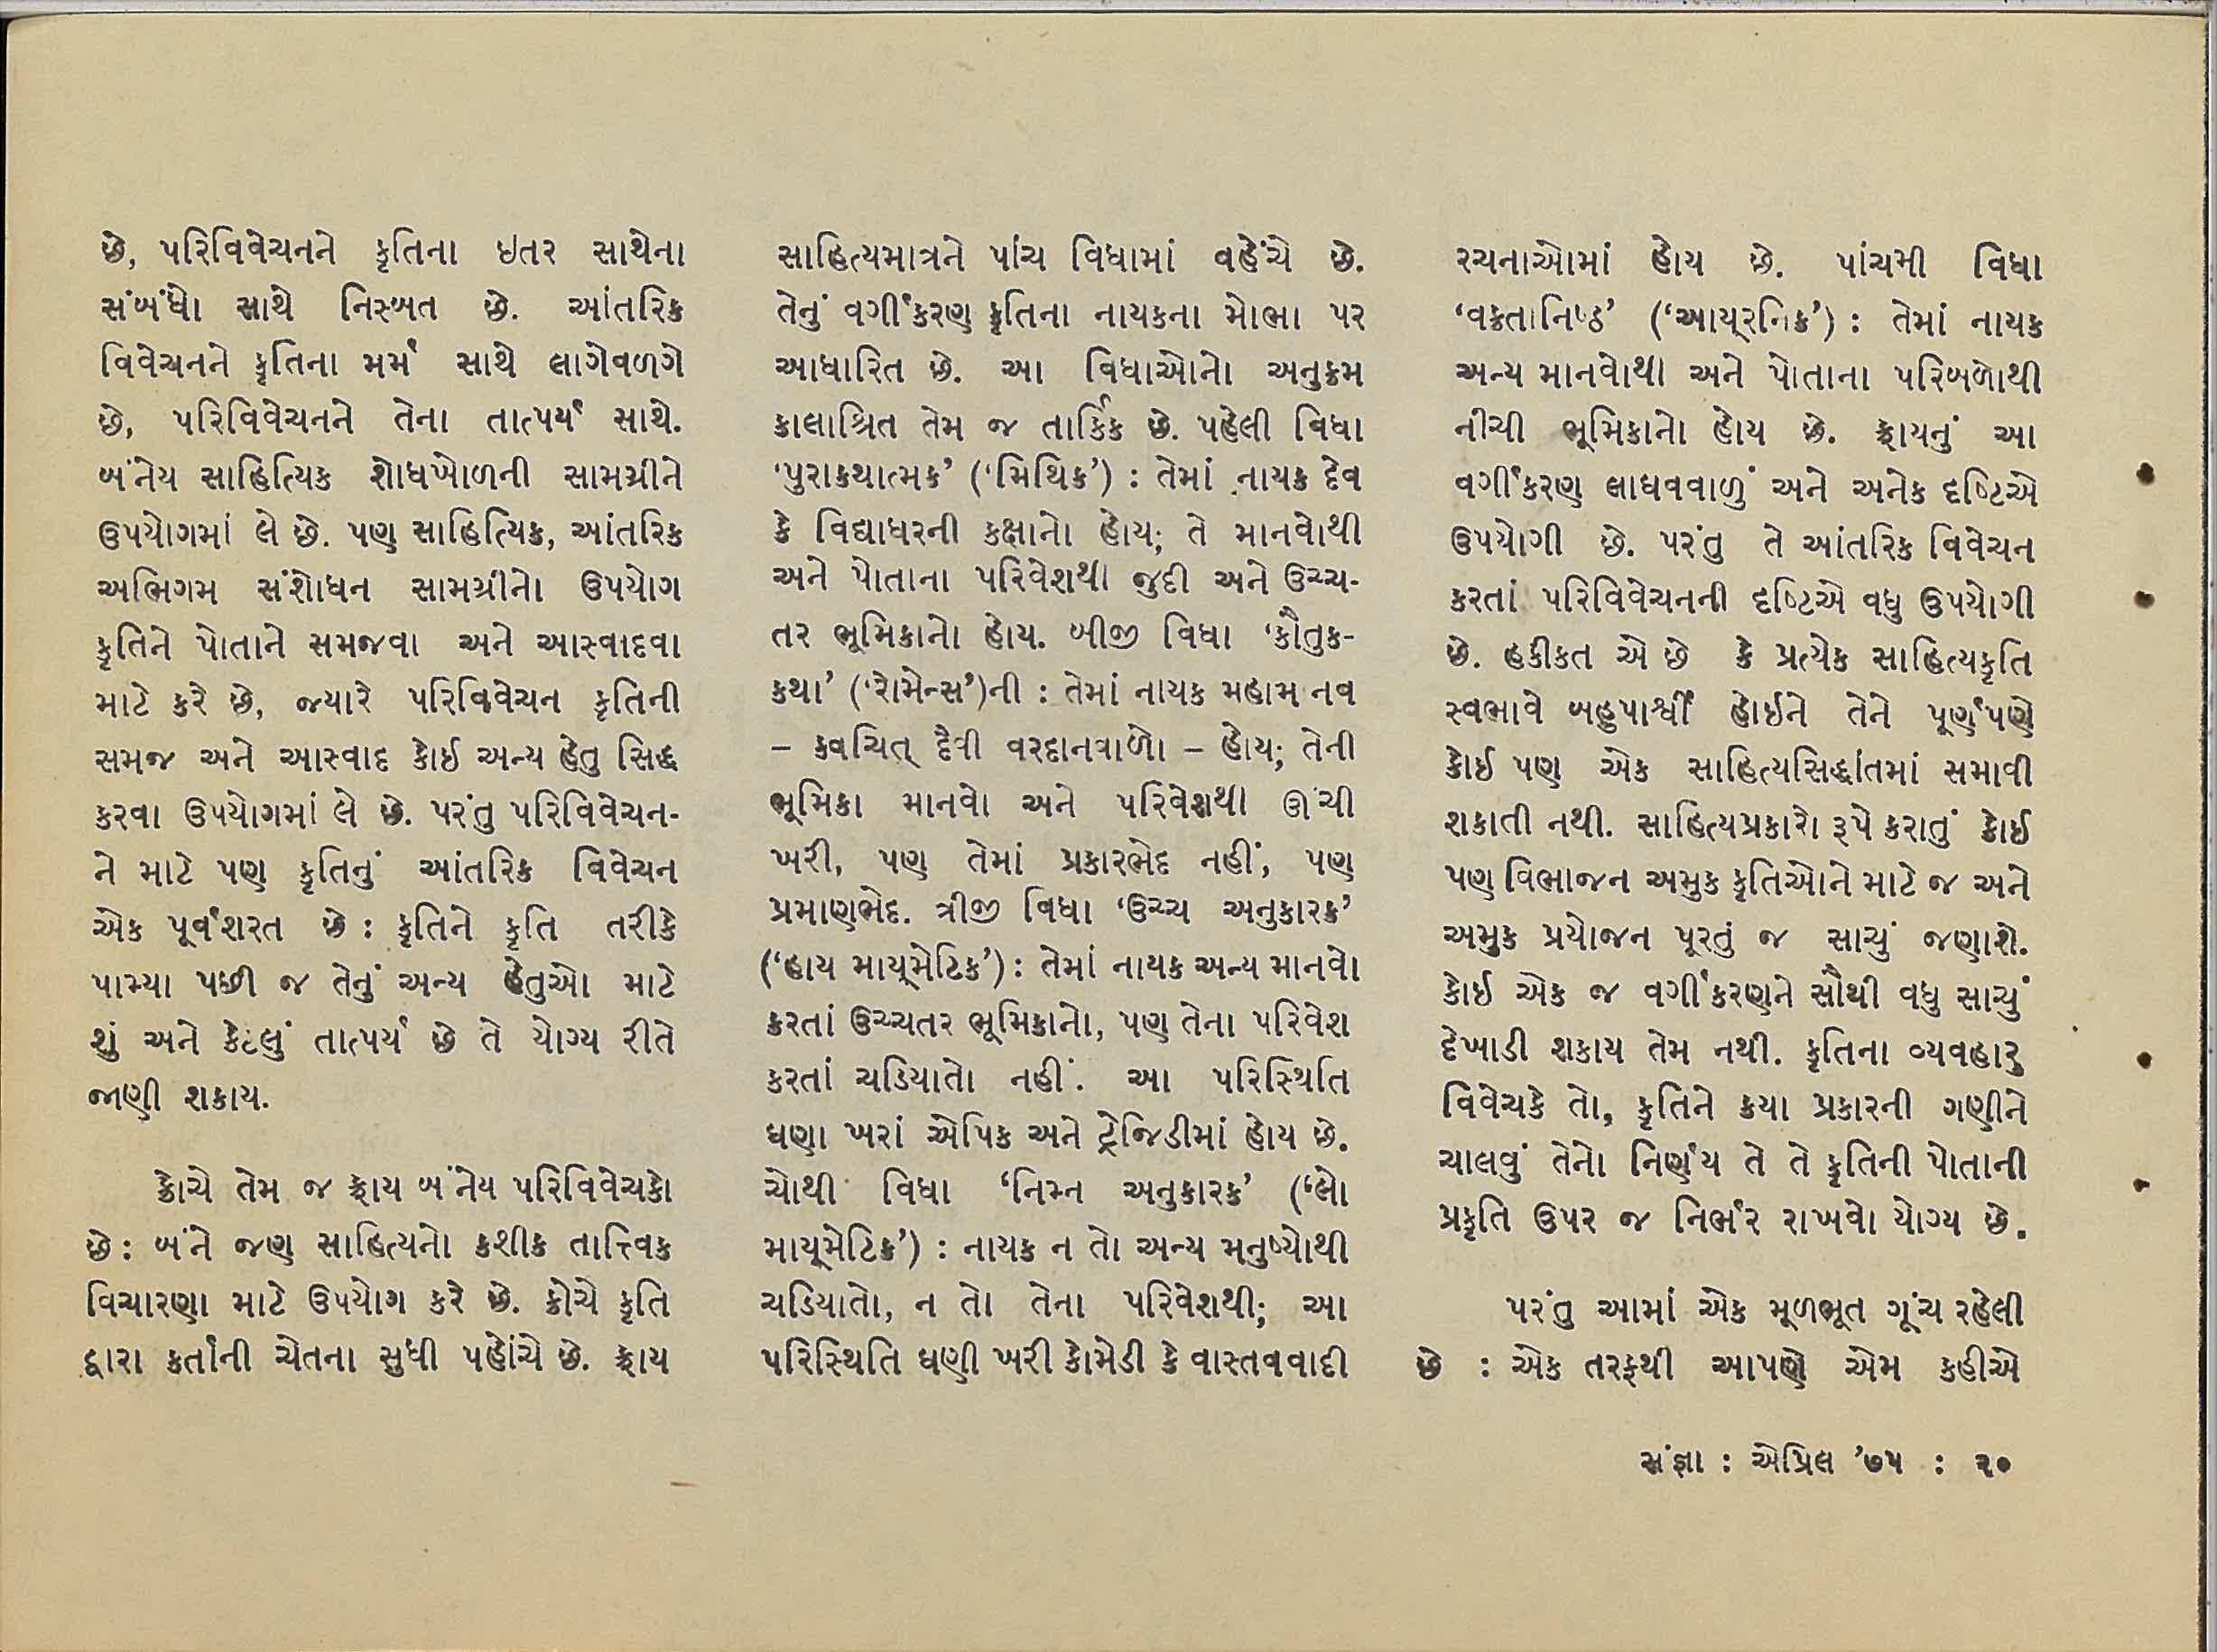 છે, પરિવિવેચનને કૃતિના ઇતર સાથેના
સંબંધો સાથે નિસ્બત છે. આંતરિક
વિવેચનને કૃતિના મર્મ સાથે લાગેવળગે
છે, પરિવિવેચનને તેના તાત્પર્ય સાથે.
બંનેય સાહિત્યિક શોધખોળની સામગ્રીને
ઉપયોગમાં લે છે. પણ સાહિત્યિક, આંતરિક
અભિગમ સંશોધન સામગ્રીનો ઉપયોગ
કૃતિને પોતાને સમજવા અને આસ્વાદવા
માટે કરે છે, જ્યારે પરિવિવેચન કૃતિની
સમજ અને આસ્વાદ કોઈ અન્ય હેતુ સિદ્ધ
કરવા ઉપયોગમાં લે છે. પરંતુ પરિવિવેચન-
ને માટે પણ કૃતિનું આંતરિક વિવેચન
એક પૂર્વશરત છે : કૃતિને કૃતિ તરીકે
પામ્યા પછી જ તેનું અન્ય હેતુઓ માટે
શું અને કેટલું તાત્પર્ય છે તે યોગ્ય રીતે
જાણી શકાય.
ક્રોચે તેમ જ ફ્રાય બંનેય પરિવિવેચકો
છે : બંને જણ સાહિત્યનો કશીક તાત્ત્વિક
વિચારણા માટે ઉપયોગ કરે છે. ક્રોચે કૃતિ
દ્વારા કર્તાની ચેતના સુધી પહોંચે છે. ફ્રાય
સાહિત્યમાત્રને પાંચ વિધામાં વહેંચે છે.
તેનું વર્ગીકરણ કૃતિના નાયકના મોભા પર
આધારિત છે. આ વિધાઓનો અનુક્રમ
કાલાશ્રિત તેમ જ તાર્કિક છે. પહેલી વિધા
‘પુરાકથાત્મક’ (‘મિથિક’) : તેમાં નાયક દેવ
કે વિદ્યાધરની કક્ષાનો હોય; તે માનવોથી
અને પોતાના પરિવેશથી જુદી અને ઉચ્ચ-
તર ભૂમિકાનો હોય. બીજી વિધા ‘કૌતુક-
કથા’ (‘રોમેન્સ’)ની : તેમાં નાયક મહામાનવ
– ક્વચિત્ દૈવી વરદાનવાળો – હોય; તેની
ભૂમિકા માનવો અને પરિવેશથી ઊંચી
ખરી, પણ તેમાં પ્રકારભેદ નહીં, પણ
પ્રમાણભેદ. ત્રીજી વિધા ‘ઉચ્ચ અનુકારક’
(‘હાય માય્મેટિક’) : તેમાં નાયક અન્ય માનવો
કરતાં ઉચ્ચતર ભૂમિકાનો, પણ તેના પરિવેશ
કરતાં ચડિયાતો નહીં. આ પરિસ્થિતિ
ઘણા ખરાં એપિક અને ટ્રેજિડીમાં હોય છે.
ચોથી વિધા ‘નિમ્ન અનુકારક’ (‘લો
માય્મેટિક’) : નાયક ન તો અન્ય મનુષ્યોથી
ચડિયાતો, ન તો તેના પરિવેશથી; આ
પરિસ્થિતિ ઘણી ખરી કોમેડી કે વાસ્તવવાદી
રચનાઓમાં હોય છે. પાંચમી વિધા
‘વક્રતાનિષ્ઠ’ (‘આય્રનિક’) : તેમાં નાયક
અન્ય માનવોથી અને પોતાના પરિબળોથી
નીચી ભૂમિકાનો હોય છે. ફ્રાયનું આ
વર્ગીકરણ લાઘવવાળું અને અનેક દૃષ્ટિએ
ઉપયોગી છે. પરંતુ તે આંતરિક વિવેચન
કરતાં પરિવિવેચનની દૃષ્ટિએ વધુ ઉપયોગી
છે. હકીકત એ છે કે પ્રત્યેક સાહિત્યકૃતિ
સ્વભાવે બહુપાર્શ્વી હોઈને તેને પૂર્ણપણે
કોઈ પણ એક સાહિત્યસિદ્ધાંતમાં સમાવી
શકાતી નથી. સાહિત્યપ્રકારો રૂપે કરાતું કોઈ
પણ વિભાજન અમુક કૃતિઓને માટે જ અને
અમુક પ્રયોજન પૂરતું જ સાચું જણાશે.
કોઈ એક જ વર્ગીકરણને સૌથી વધુ સાચું
દેખાડી શકાય તેમ નથી. કૃતિના વ્યવહારુ
વિવેચકે તો, કૃતિને કયા પ્રકારની ગણીને
ચાલવું તેનો નિર્ણય તે તે કૃતિની પોતાની
પ્રકૃતિ ઉપર જ નિર્ભર રાખવો યોગ્ય છે.
પરંતુ આમાં એક મૂળભૂત ગૂંચ રહેલી
છે : એક તરફથી આપણે એમ કહીએ
સંજ્ઞા : એપ્રિલ ’૭૫ : ૨૦